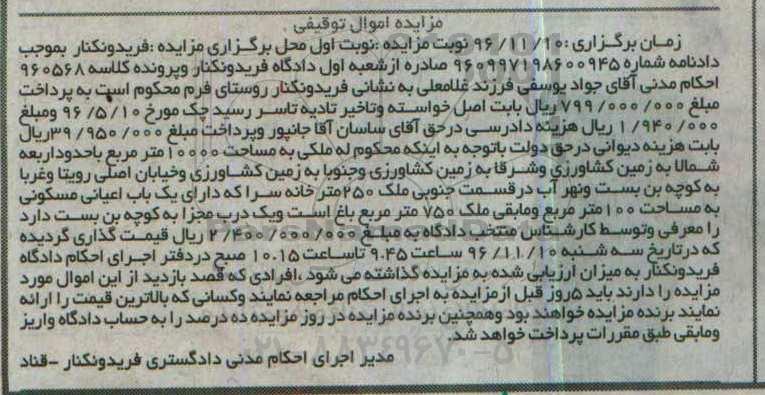 مزایده اموال توقیفی
زمان برگزاری :۹۶/۱۱/۱۰ نوبت مزایده :نوبت اول محل برگزاری مزایده :فریدونکنار بموجب
دادنامه شماره ۹۶۰۹۹۷۱۹۸۶۰۰۹۴۵ صادره ازشعبه اول دادگاه فریدونکنار وپرونده کلاسه ۹۶۰۵۶۸
احکام مدنی آقای جواد یوسفی فرزند غلامعلی به نشانی فریدونکنار روستای فرم محکوم است به پرداخت
مبلغ ۷۹۹/۰۰۰/۰۰۰ ریال بابت اصل خواسته وتاخیر تادیه تاسر رسید چک مورخ ۹۶/۵/۱۰ ومبلغ
۱/۹۴۰/۰۰۰ ریال هزینه دادرسی درحق آقای ساسان آقا جانپور وپرداخت مبلغ ۳۹/۹۵۰/۰۰۰ریال
بابت هزینه دیوانی درحق دولت باتوجه به اینکه محکوم له ملکی به مساحت ۱۰۰۰۰متر مربع باحدوداربعه
شمالا به زمین کشاورزی وشرقا به زمین کشاورزی وجنوبا به زمین کشاورزی وخیابان اصلی رویتا وغربا
به کوچه بن بست ونهر آب درقسمت جنوبی ملک ۲۵۰متر خانه سرا که دارای یک باب اعیانی مسکونی
به مساحت ۱۰۰متر مربع ومابقی ملک ۷۵۰ متر مربع باغ است ویک درب مجزا به کوچه بن بست دارد
را معرفی وتوسط کارشناس منتخب دادگاه به مبلغ ۲/۴۰۰/۰۰۰/۰۰۰ ریال قیمت گذاری گردیده
که درتاریخ سه شنبه ۹۶/۱۱/۱۰ ساعت ۹.۴۵ تاساعت ۱۰.۱۵ صبح دردفتر اجرای احکام دادگاه
فریدونکنار به میزان ارزیابی شده به مزایده گذاشته می شود ،افرادی که قصد بازدید از این اموال مورد
مزایده را دارند باید ۵روز قبل ازمزایده به اجرای احکام مراجعه نمایند وکسانی که بالاترین قیمت را ارائه
نمایند برنده مزایده خواهند بود وهمچنین برنده مزایده در روز مزایده ده درصد را به حساب دادگاه واریز
ومابقی طبق مقررات پرداخت خواهد شد.
مدیر اجرای احکام مدنی دادگستری فریدونکنار -قناد
۰۲۱-۸۸۳۴۹۶۷۰-۵